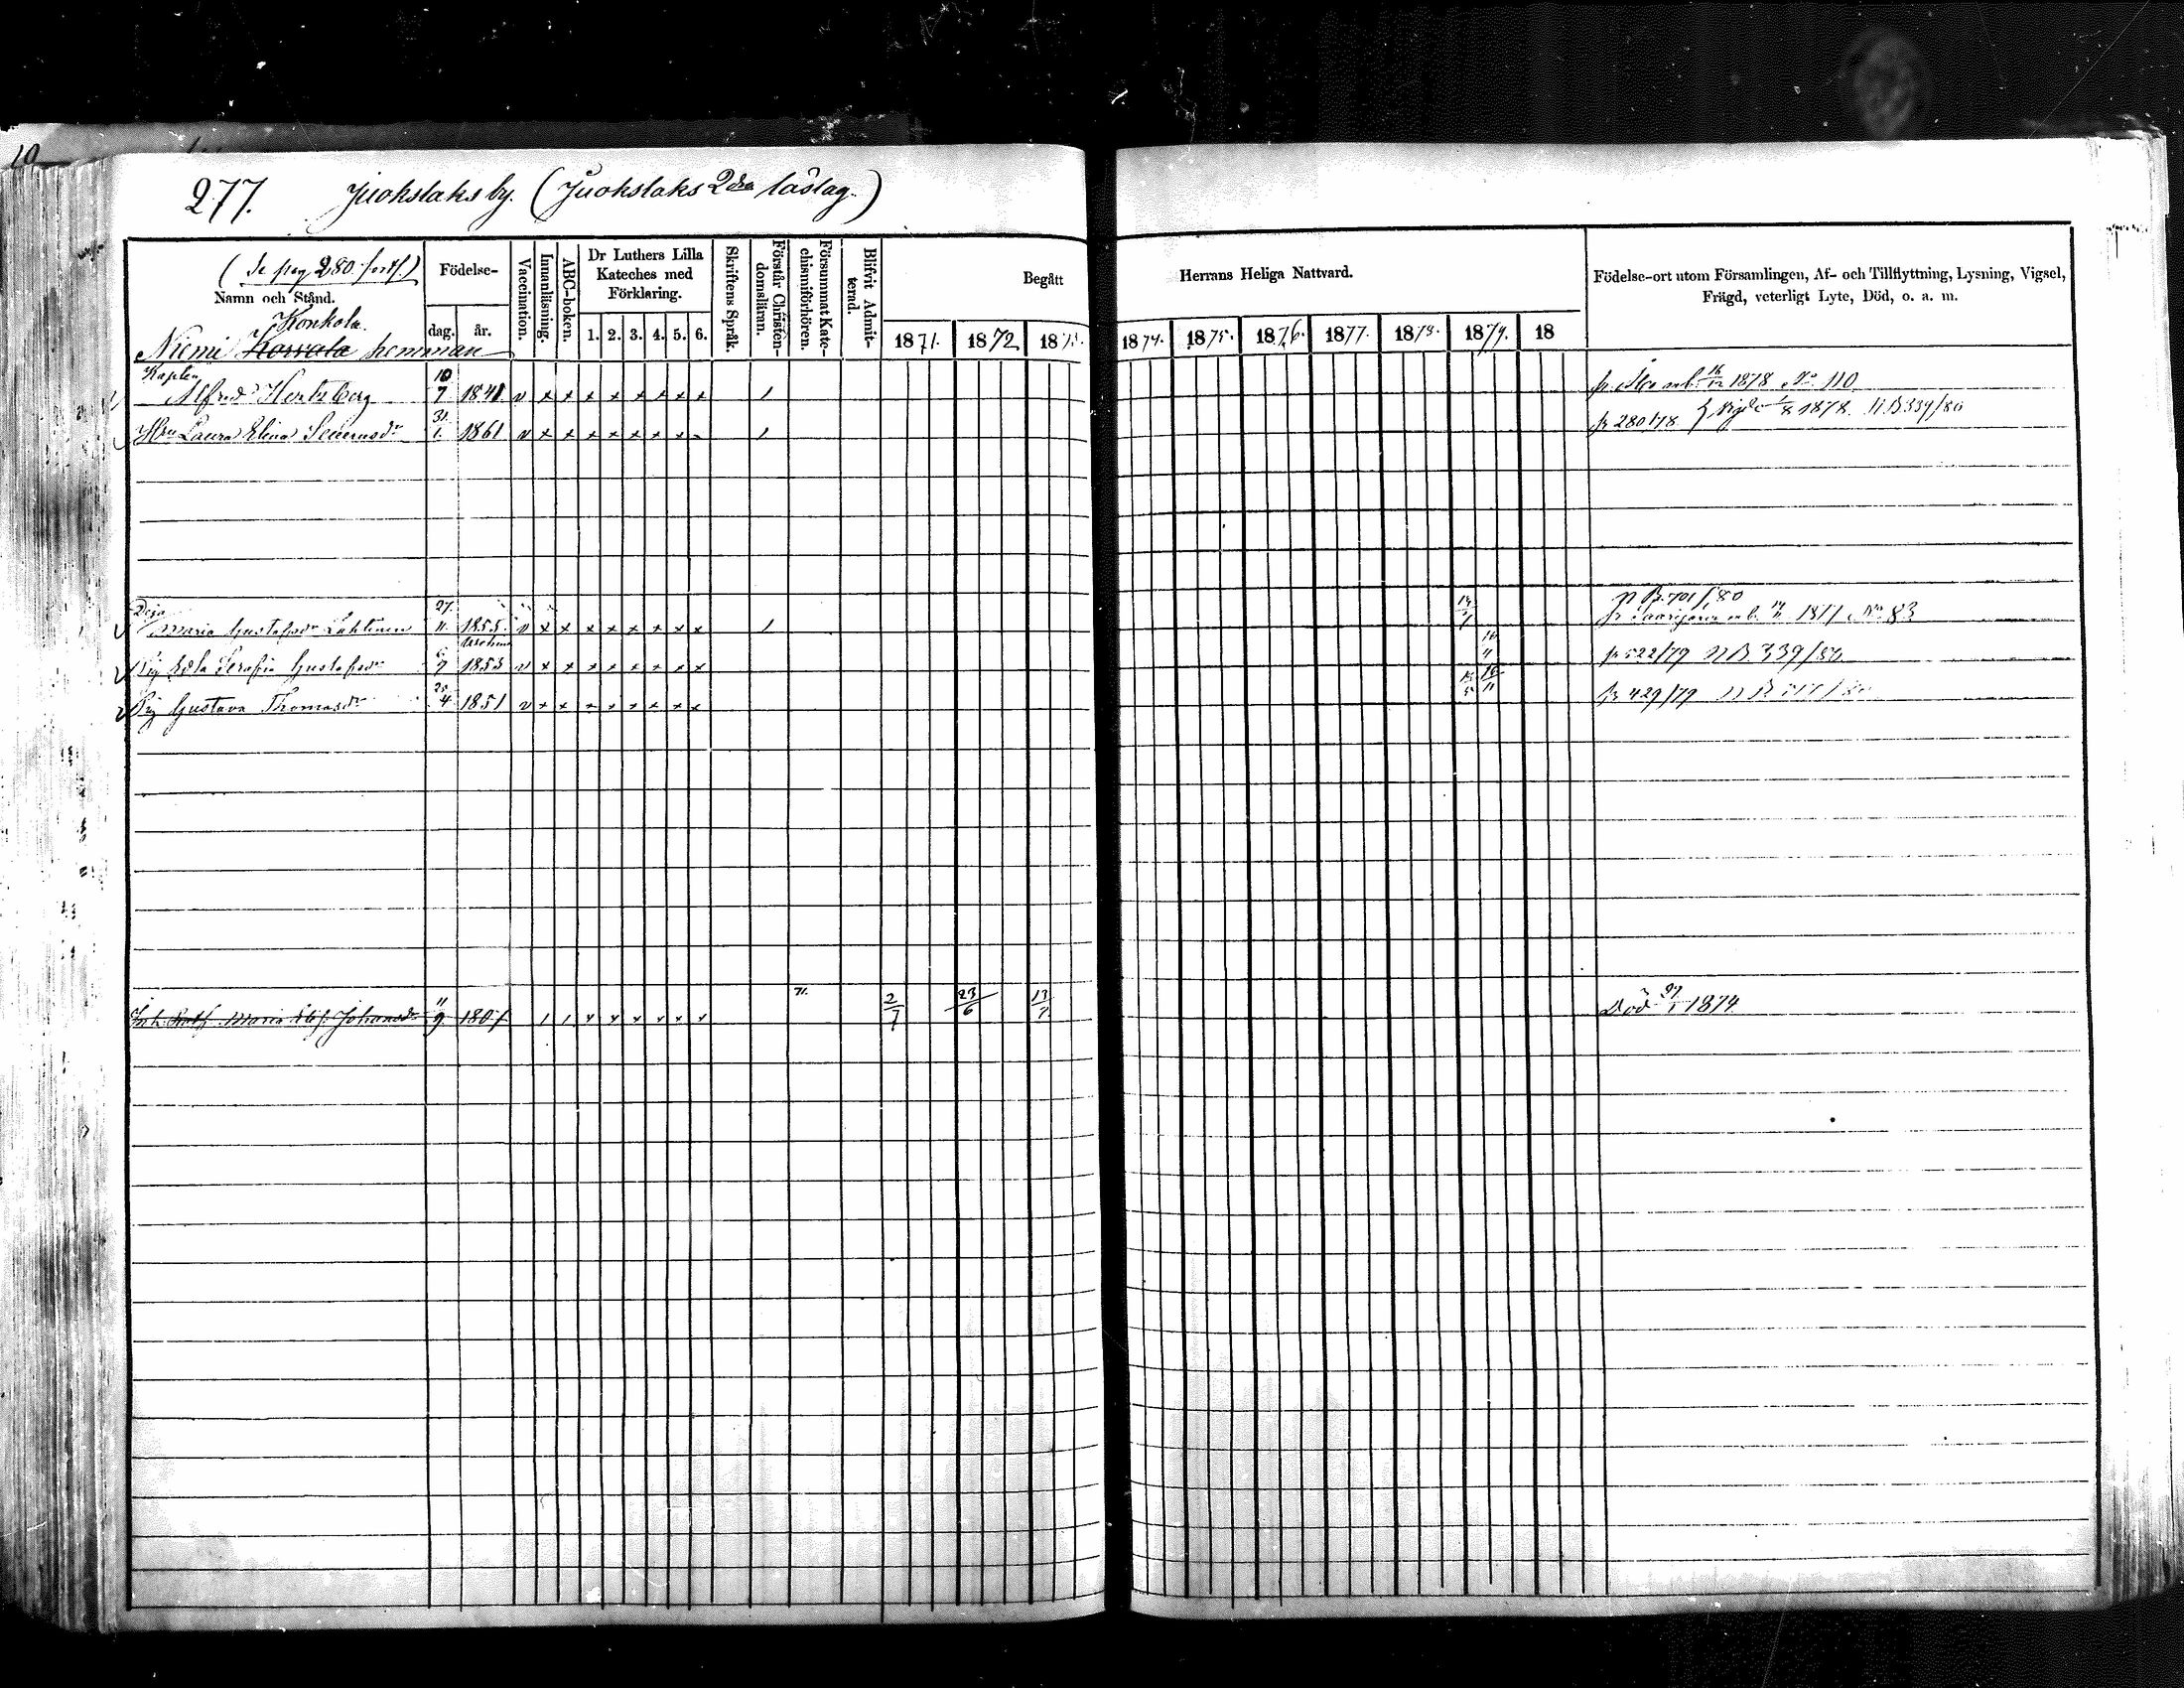 10
277. Juokslaks by. (Juokslaks 2dra läslag.)
(Se pag 280. forts.)
Namn och Stånd.
Födelse-
dag. år.
Vaccination.
Innanläsning.
ABC-boken.
Dr Luthers Lilla Kateches med Förklaring.
1. 2. 3. 4. 5. 6.
Skriftens Språk.
Förstår Christendomsläran.
Försummat Katechismiförhören.
Blifvit Admitterad.
Begått Herrans Heliga Nattvard.
1871. 1872 1873. 1874. 1875. 1876. 1877. 1878. 1879. 18
Födelse-ort utom Församlingen, Af- och Tillflyttning, Lysning, Vigsel,
Frägd, veterligt Lyte, Död, o. a. m.
Konkola.
Niemi Korvala hemman
Kaplan
Alfred Hertzberg 10/7 1841 v x x x x x x x x / 1878 No 110
Hu Laura Elina 31/1. 1861 v x x x x x x x - / fr 280/78 1878. NB 339/80
Deja
Maria Gustafsdr Lahtinen 27/11. 1855. v x x x x x x x x / NB. 701/80
fr Saarijärvi 1877 No 83
Pig Edla Serafia Gustafsdr 6/7 1853 v x x x x x x x x fr 522/79 NB 339/80
Pig Gustava Thomasdr 25/4 1851 v x x x x x x x x fr 429/79
Maria Johansdr 11/9 1807 / / x x x x x x 71. 2/7 23/6 13/7 Död 1874